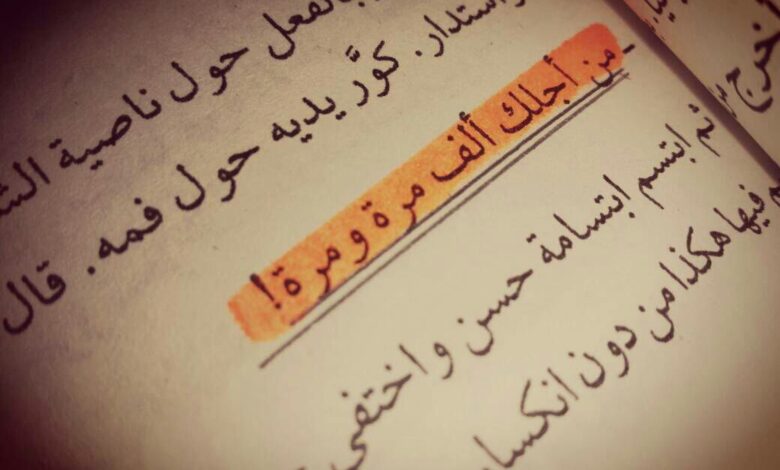 بالفعل حول ناصية
واستدار. كوَّر يديه حول فمه. قال
- من أجلك ألف مرة ومرة!
ثم ابتسم ابتسامة حسن واختفى
فيها هكذا من دون